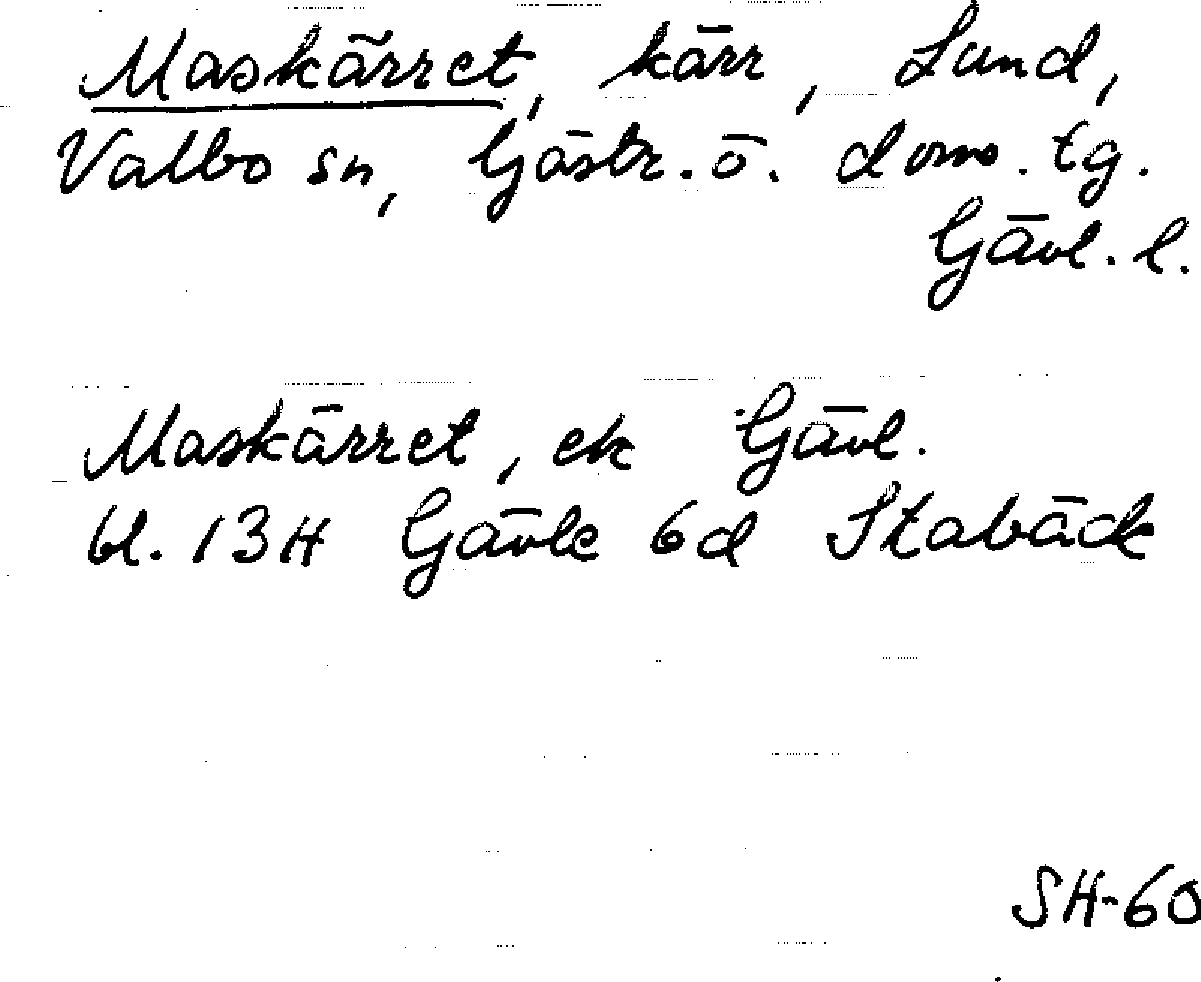 Maskärret, kärr, Lund,
Valbo sn, Gästr. ö. doms. tg.
Gävl. l.
Maskärret, ek Gävl.
bl. 13H Gävle 6d Stabäck
SH-60